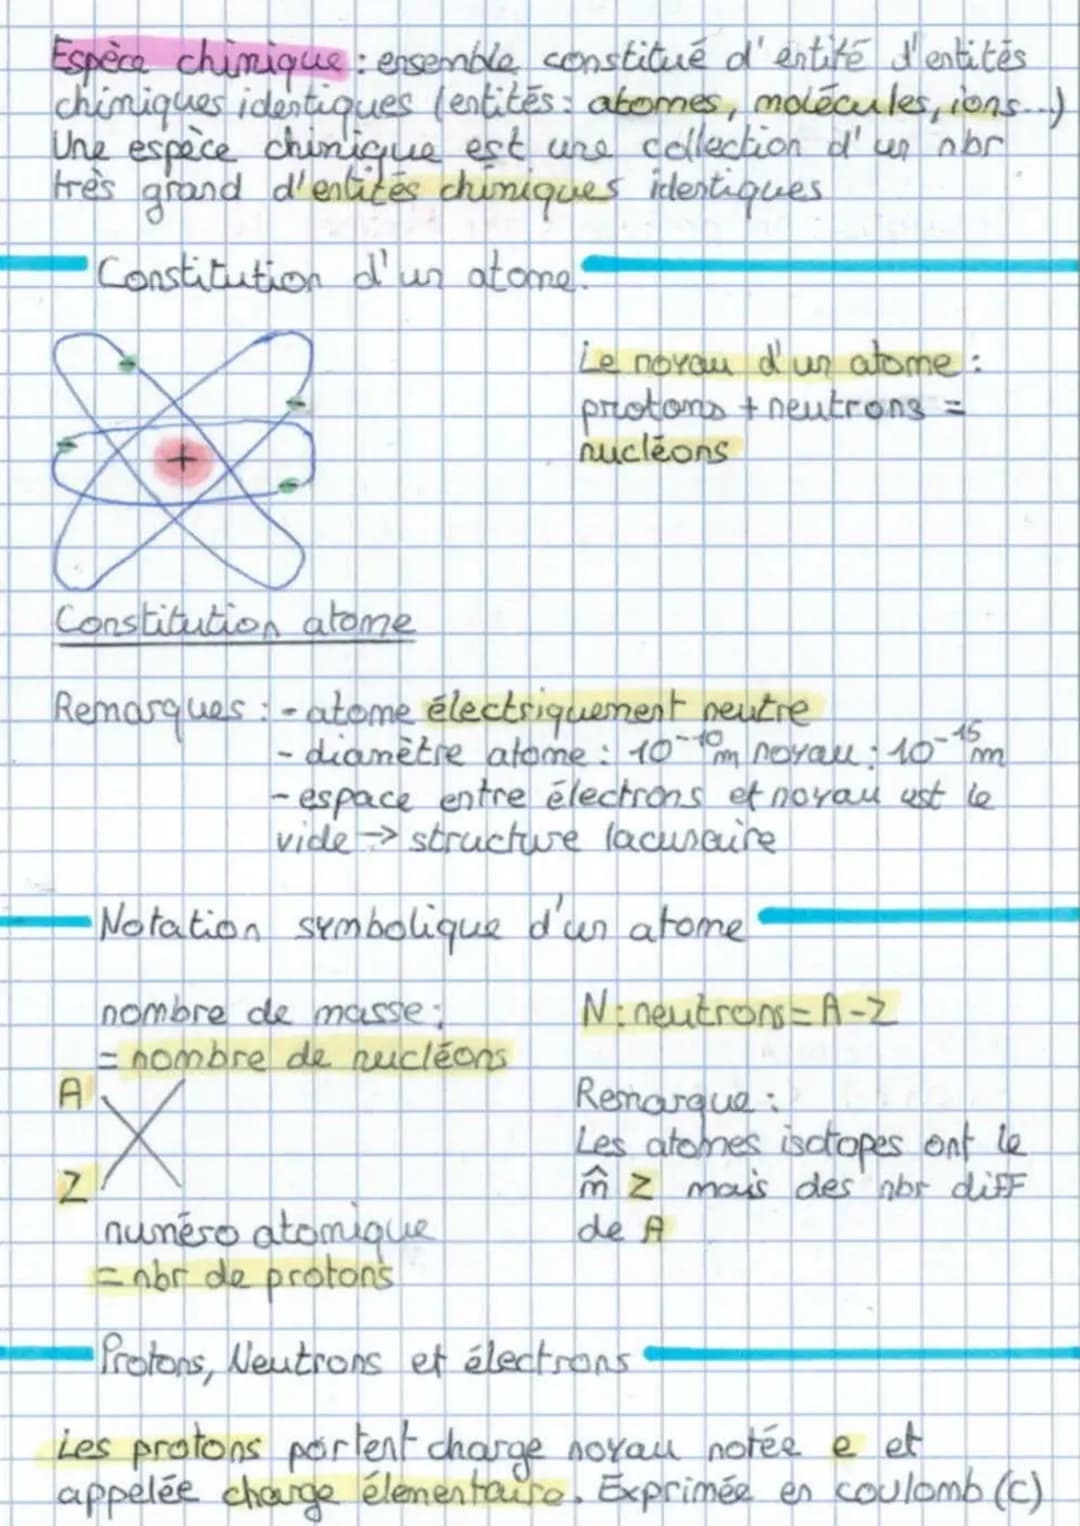 Espèce chimique : ensemble constitué d'entité d'entités
chimiques identiques (entités: atomes, molécules, ions...)
Une espèce chimique est une collection d'un nbr
très grand d'entités chimiques identiques
Constitution d'un atome.
+
Le noyau d'un atome :
protons + neutrons =
nucléons
Constitution atome
Remarques : - atome électriquement neutre
- diamètre atome : 10⁻¹⁰m noyau : 10⁻¹⁵m
- espace entre électrons et noyau est le
vide → structure lacunaire
Notation symbolique d'un atome
nombre de masse :
= nombre de nucléons
A
X
Z
numéro atomique
= nbr de protons
N : neutrons = A - Z
Remarque :
Les atomes isotopes ont le
m̂ Z mais des nbr diff
de A
Protons, Neutrons et électrons
Les protons portent charge noyau notée e et
appelée charge élementaire. Exprimée en coulomb (C)